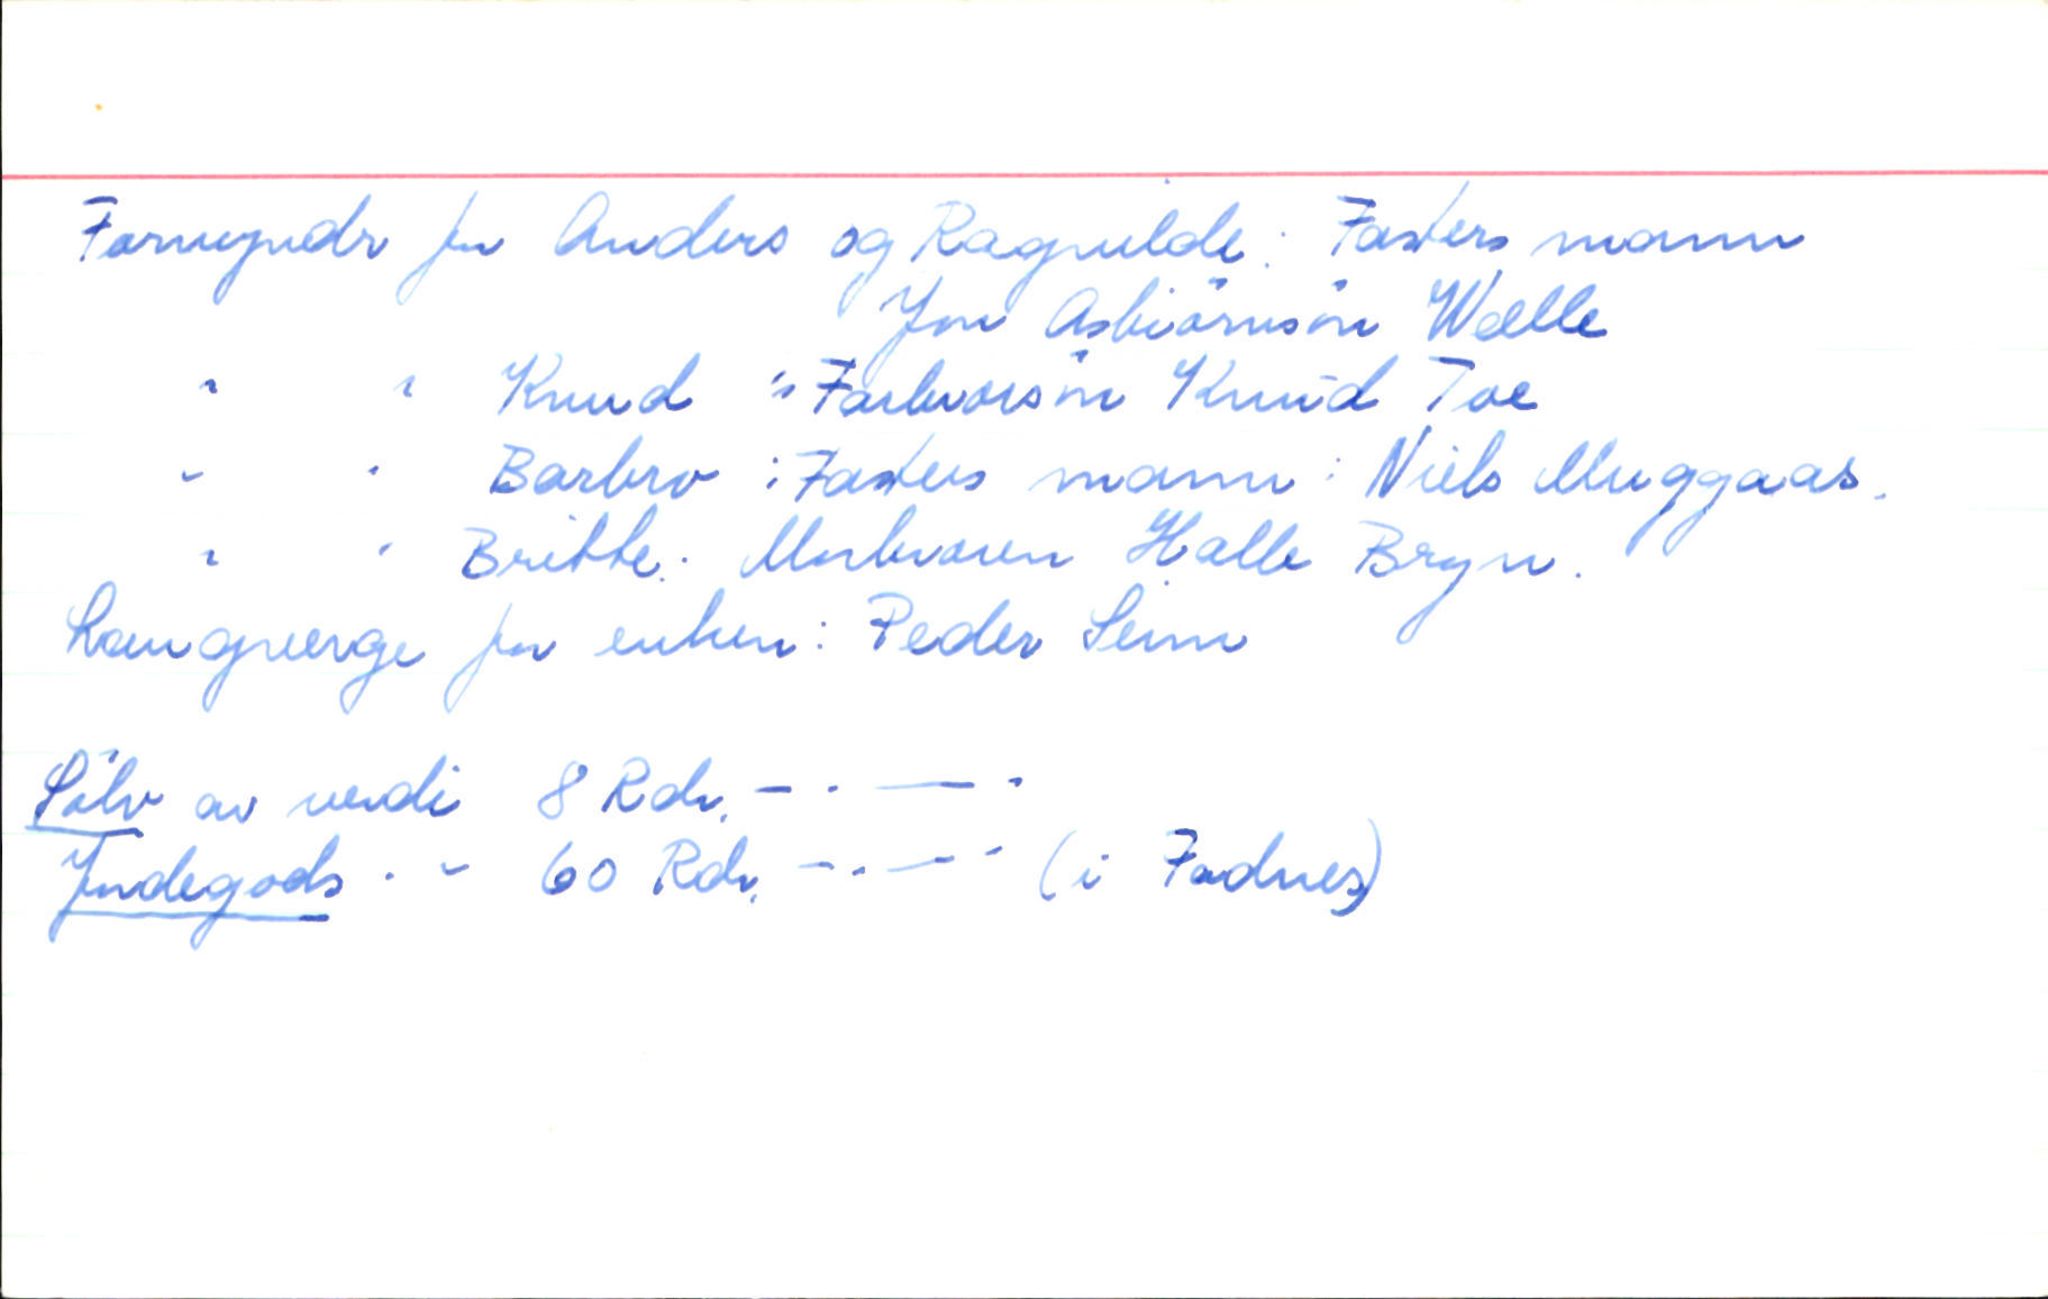 Formyndr for Anders og Ragnilde: Fasters mann
Jon Asbiörnsön Wælle
" " Knud " Farbrorsön Knud Toe
" " Barbro : Fasters mann : Niels Muggaas.
" " Britte. Morbroren Halle Bryn.
Laugverge for enken: Peder Seim
Sölv av verdi 8 Rdr. – . — .
Jordegods . " 60 Rdr. – . – - (i Fadnes)